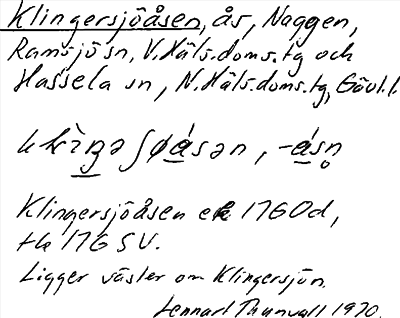 Klingersjöåsen, ås, Naggen,
Ramsjö sn, V. Häls. doms. tg och
Hassela sn, N. Häls. doms. tg, Gävl. l.
-ásn̥
Klingersjöåsen ek 1760d,
tk 176 SV.
Ligger väster om Klingersjön.
Lennart Thunvall 1970.